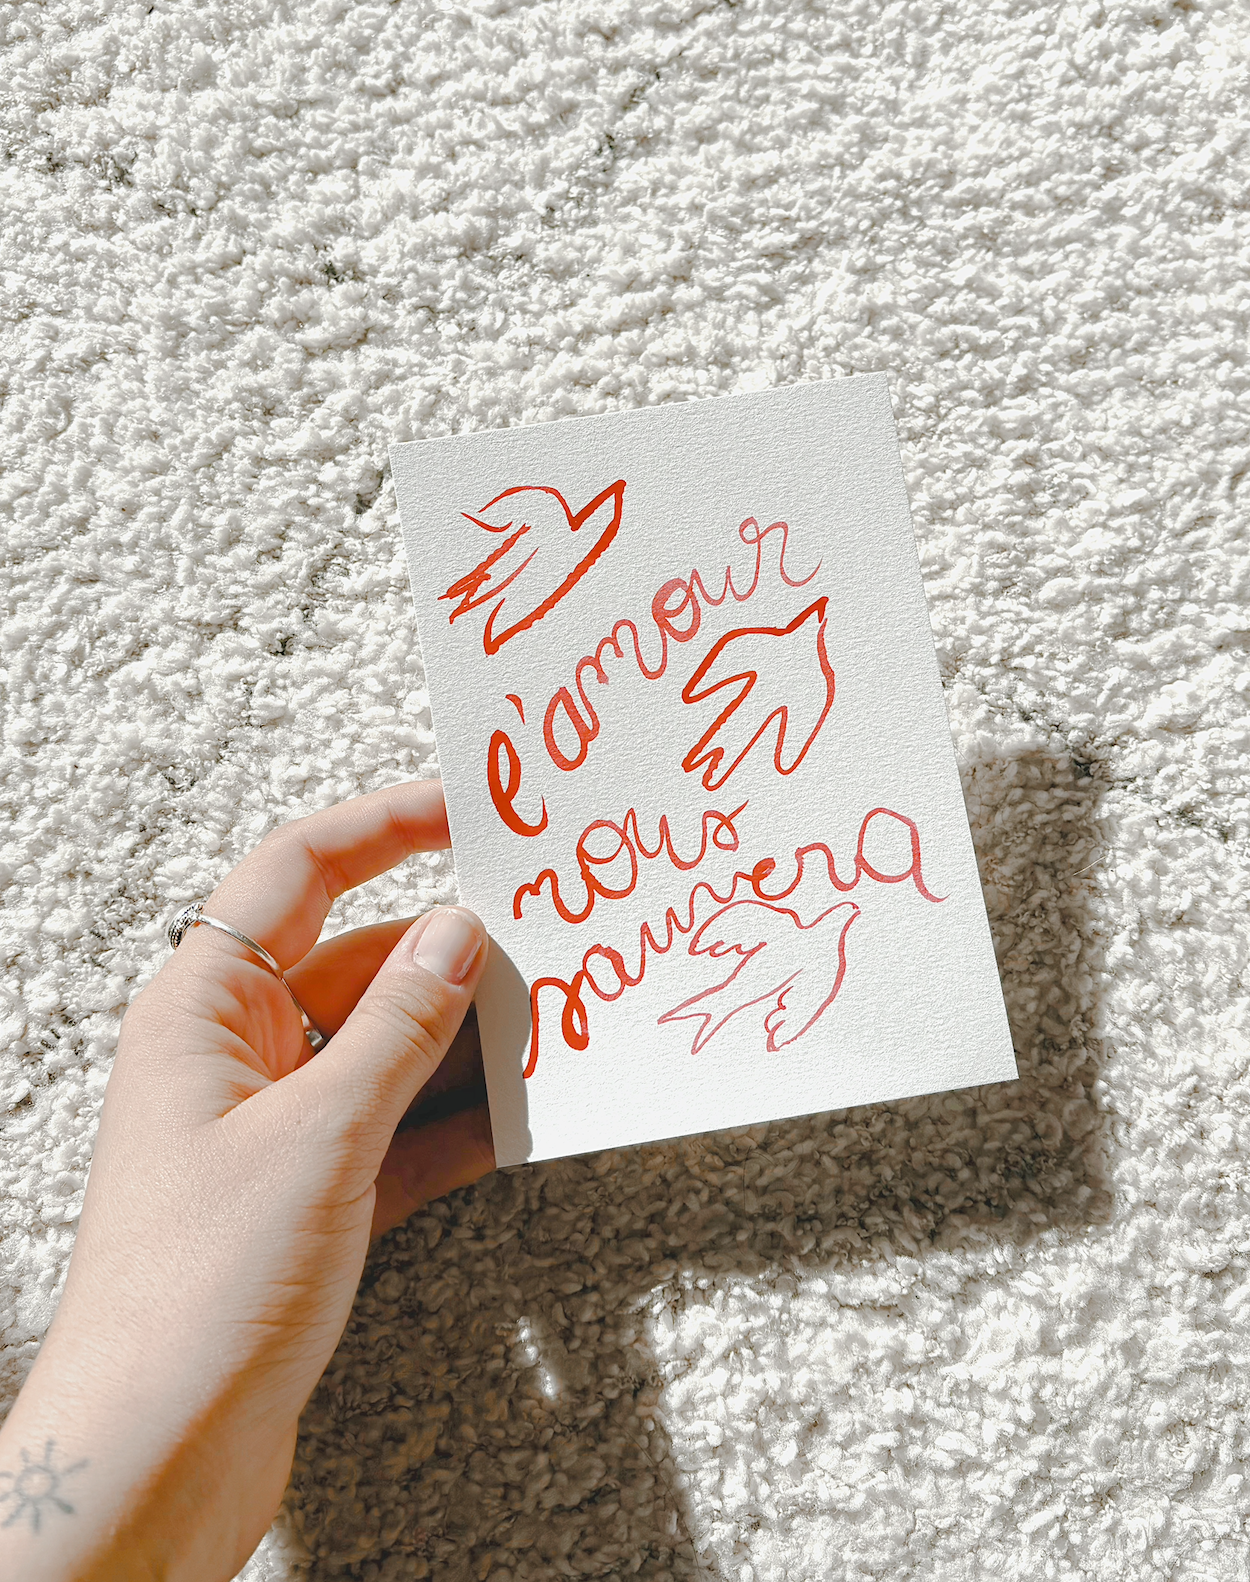 l'amour
nous
sauvera